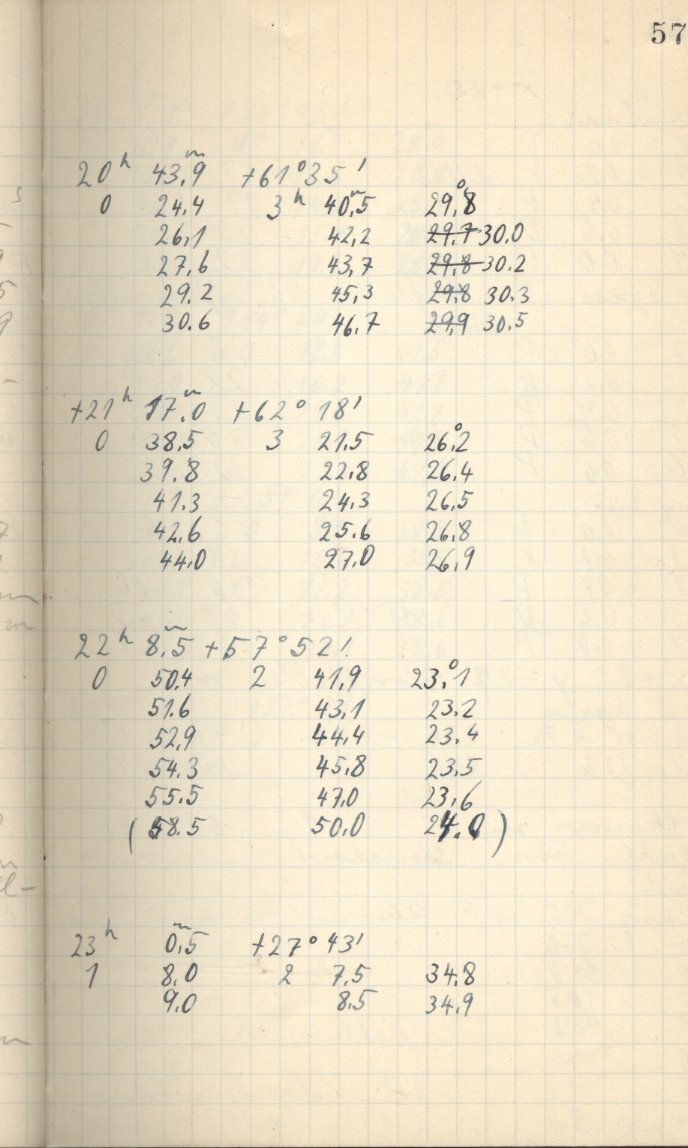 57
20ʰ 43,ᵐ9 +61°35'
0 24,4 3ʰ 40,ᵐ5 29,°8
26,1 42,2 29,7 30.0
27,6 43,7 29,8 30.2
29.2 45,3 29,8 30.3
30.6 46,7 29,9 30.5
+21ʰ 17,ᵐ0 +62° 18'
0 38,5 3 21,5 26,°2
39.8 22,8 26,4
41,3 24,3 26,5
42,6 25.6 26,8
44,0 27,0 26,9
22ʰ 8,ᵐ5 +57°52'
0 50,4 2 41,9 23,°1
51.6 43,1 23.2
52,9 44,4 23.4
54,3 45,8 23,5
55.5 47,0 23,6
(58.5 50,0 24.0)
23ʰ 0,ᵐ5 +27° 43'
1 8,0 2 7,5 34,8
9,0 8.5 34,9